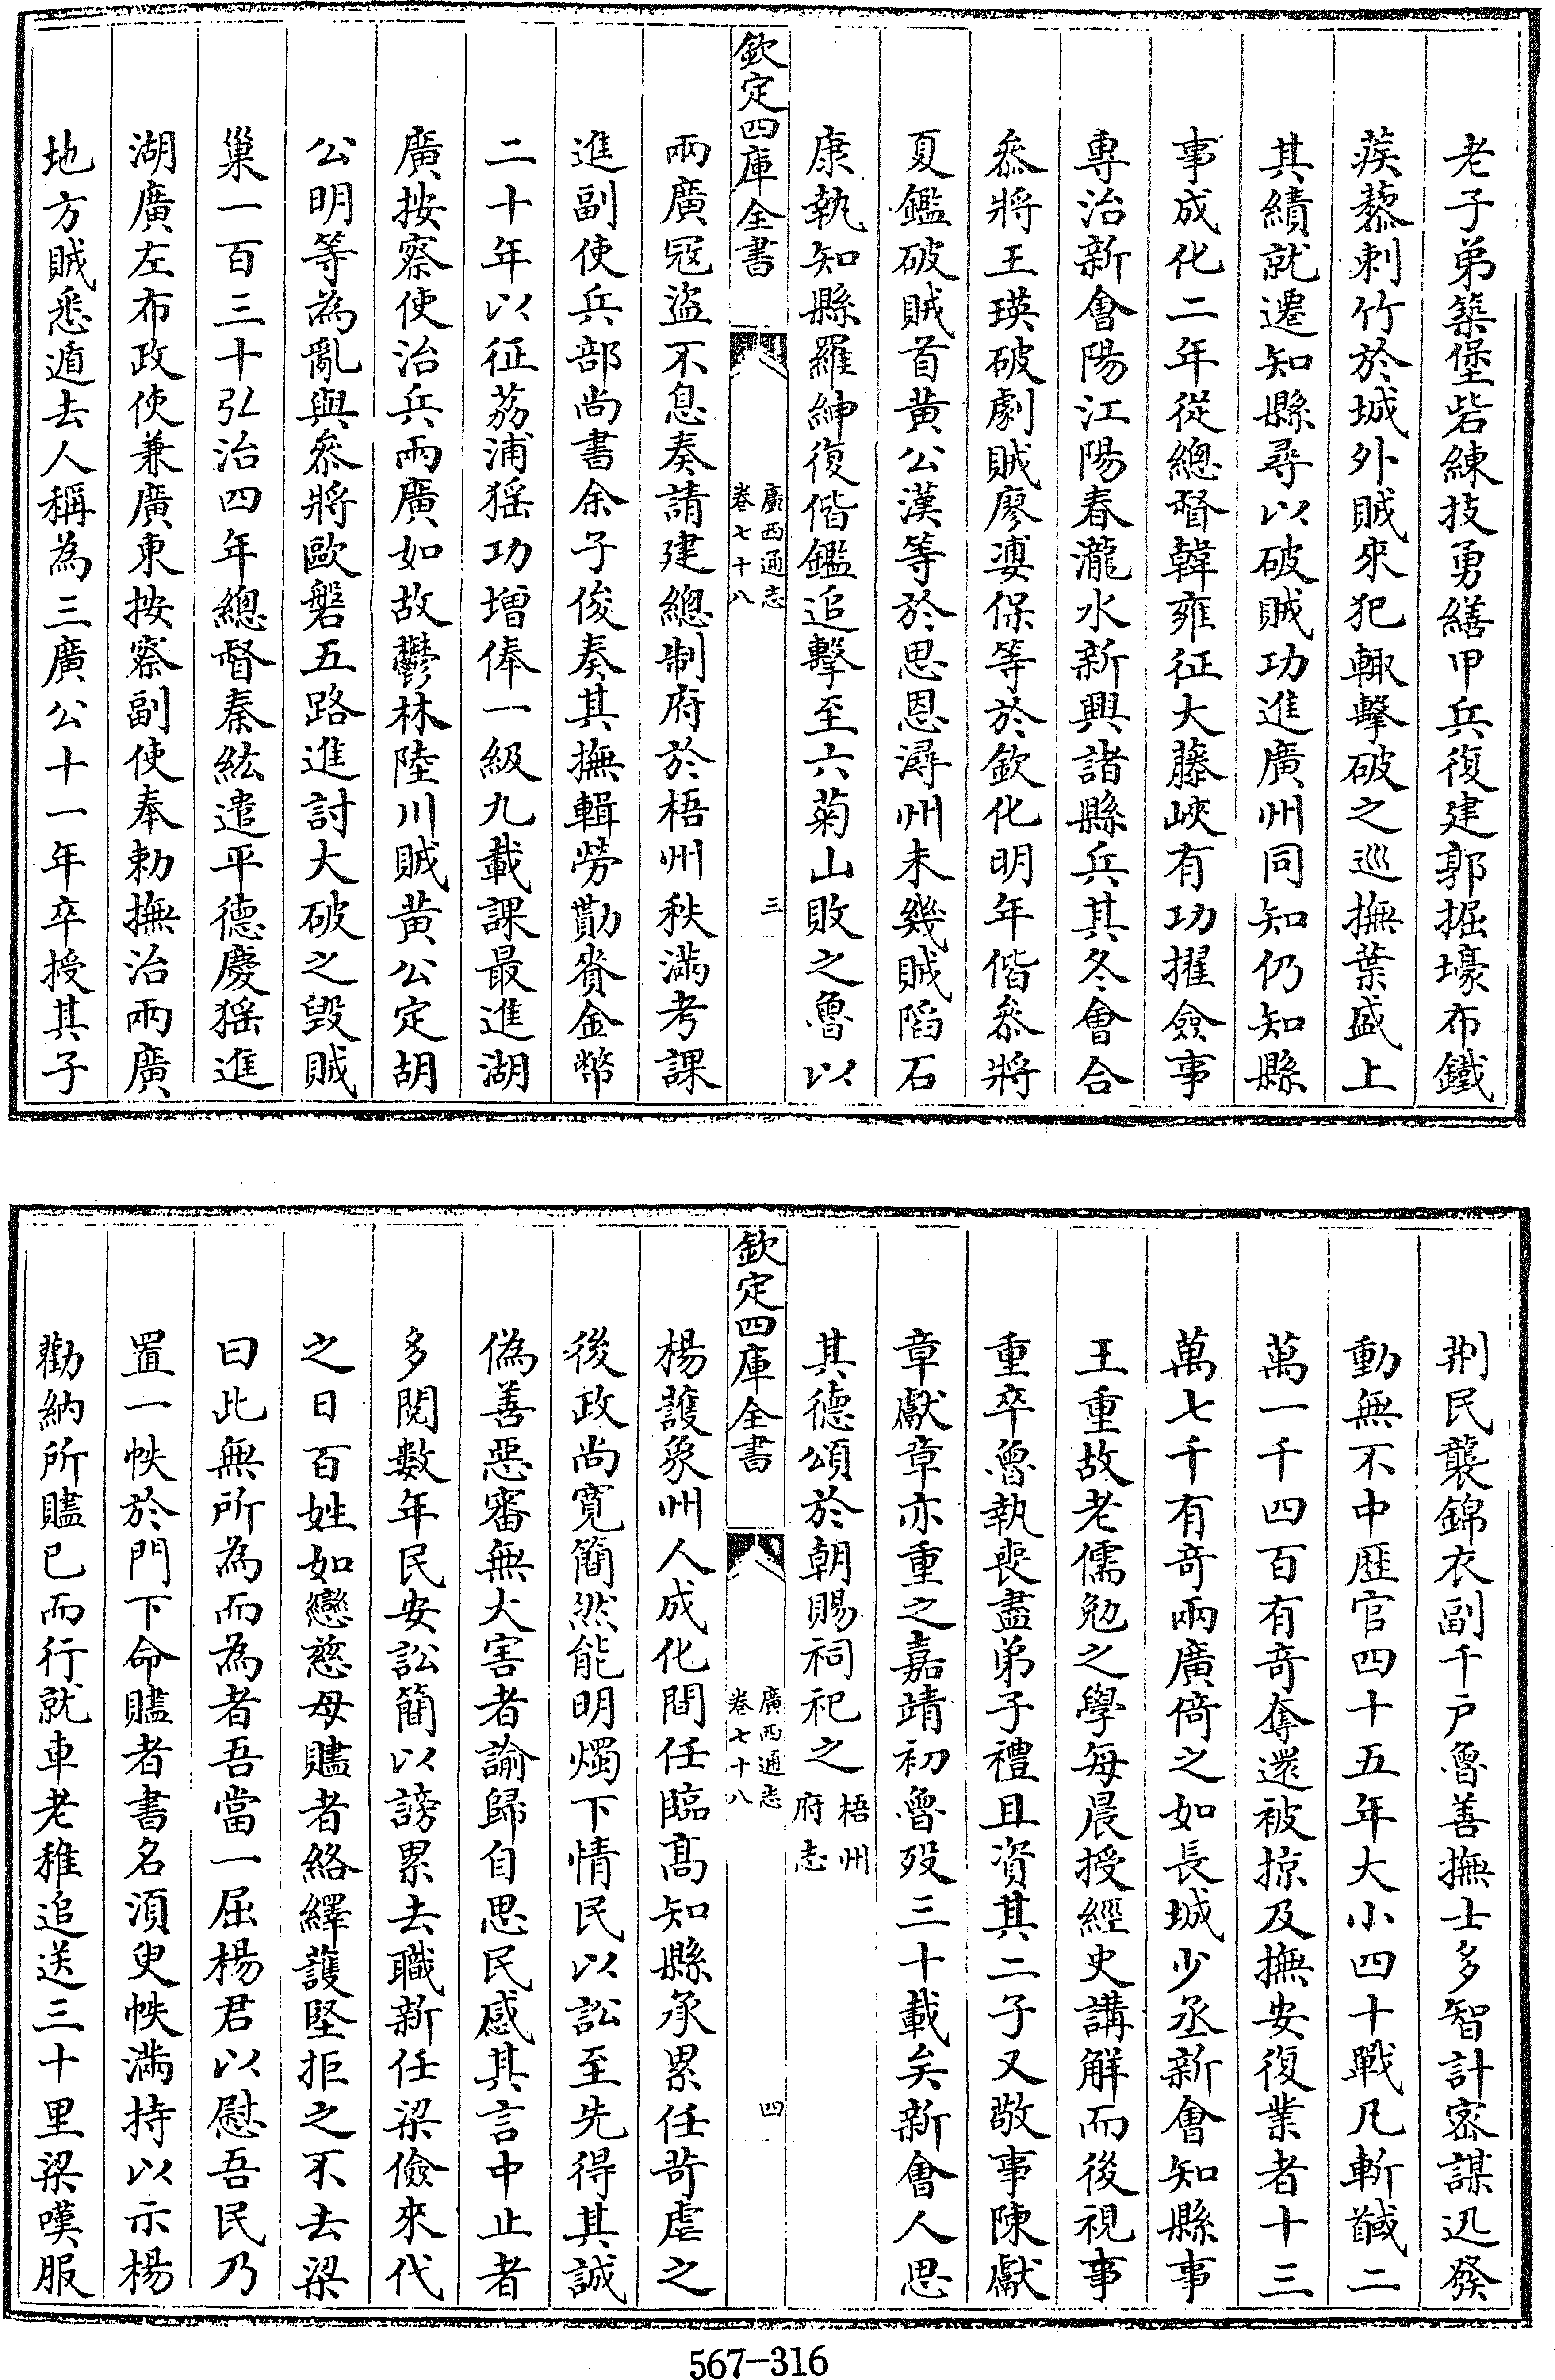 老子弟築堡砦練技勇繕甲兵復建郭掘壕布鐵
蒺藜刺竹於城外賊來犯輙擊破之巡撫葉盛上
其績就遷知縣尋以破賊功進廣州同知仍知縣
事成化二年從總督韓雍征大藤峽有功擢僉事
專治新會陽江陽春瀧水新興諸縣兵其冬會合
叅將王瑛破劇賊廖婆保等於欽化明年偕叅將
夏鑑破賊首黄公漢等於思恩潯州未幾賊陷石
康執知縣羅紳復偕鑑追擊至六菊山敗之魯以
欽定四庫全書
廣西通志
卷七十八
三
兩廣冦盜不息奏請建總制府於梧州秩滿考課
進副使兵部尚書余子俊奏其撫輯勞勩賚金幣
二十年以征荔浦猺功增俸一級九載課最進湖
廣按察使治兵兩廣如故鬱林陸川賊黄公定胡
公明等為亂與叅將歐磐五路進討大破之毁賊
巢一百三十弘治四年總督秦紘遣平德慶猺進
湖廣左布政使兼廣東按察副使奉勅撫治兩廣
地方賊悉遁去人稱為三廣公十一年卒授其子
荆民襲錦衣副千户魯善撫士多智計密謀迅發
動無不中歷官四十五年大小四十戰凡斬馘二
萬一千四百有奇奪還被掠及撫安復業者十三
萬七千有奇兩廣倚之如長城少丞新會知縣事
王重故老儒勉之學每晨授經史講解而後視事
重卒魯執喪盡弟子禮且資其二子又敬事陳獻
章獻章亦重之嘉靖初魯殁三十載矣新會人思
其德頌於朝賜祠祀之梧州
府志
欽定四庫全書
廣西通志
卷七十八
四
楊護象州人成化間任臨髙知縣承累任苛虐之
後政尚寛簡然能明燭下情民以訟至先得其誠
偽善惡審無大害者諭歸自思民感其言中止者
多閱數年民安訟簡以謗累去職新任梁儉來代
之日百姓如戀慈母贐者絡繹護堅拒之不去梁
曰此無所為而為者吾當一屈楊君以慰吾民乃
置一帙於門下命贐者書名湏臾帙滿持以示楊
勸納所贐已而行就車老稚追送三十里梁嘆服
567-316